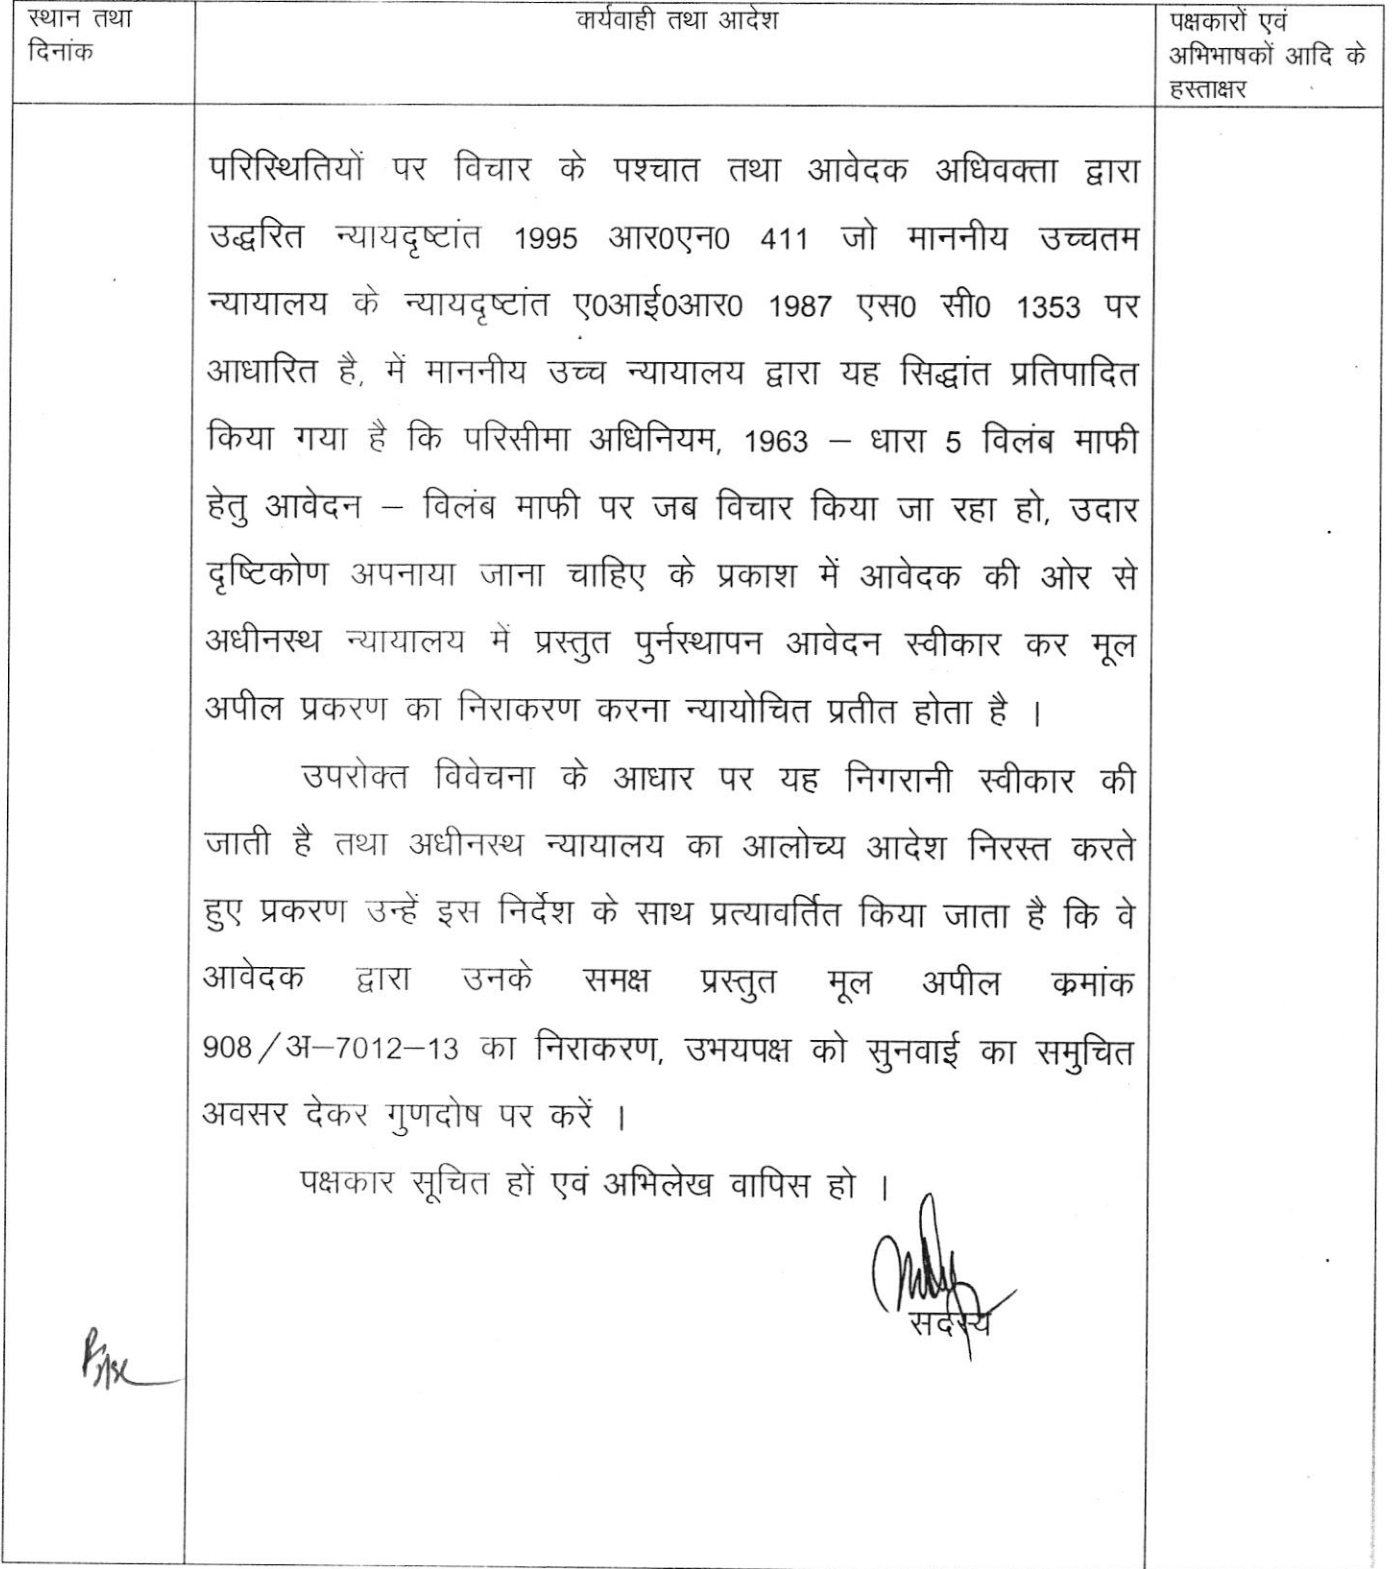 स्थान तथा
दिनांक
कार्यवाही तथा आदेश
पक्षकारों एवं
अभिभाषकों आदि के
हस्ताक्षर
परिस्थितियों पर विचार के पश्चात तथा आवेदक अधिवक्ता द्वारा
उद्धरित न्यायदृष्टांत 1995 आर0एन0 411 जो माननीय उच्चतम
न्यायालय के न्यायदृष्टांत ए0आई0आर0 1987 एस0 सी0 1353 पर
आधारित है, में माननीय उच्च न्यायालय द्वारा यह सिद्धांत प्रतिपादित
किया गया है कि परिसीमा अधिनियम, 1963 – धारा 5 विलंब माफी
हेतु आवेदन – विलंब माफी पर जब विचार किया जा रहा हो, उदार
दृष्टिकोण अपनाया जाना चाहिए के प्रकाश में आवेदक की ओर से
अधीनस्थ न्यायालय में प्रस्तुत पुर्नस्थापन आवेदन स्वीकार कर मूल
अपील प्रकरण का निराकरण करना न्यायोचित प्रतीत होता है ।
उपरोक्त विवेचना के आधार पर यह निगरानी स्वीकार की
जाती है तथा अधीनस्थ न्यायालय का आलोच्य आदेश निरस्त करते
हुए प्रकरण उन्हें इस निर्देश के साथ प्रत्यावर्तित किया जाता है कि वे
आवेदक द्वारा उनके समक्ष प्रस्तुत मूल अपील कमांक
908/अ–7012–13 का निराकरण, उभयपक्ष को सुनवाई का समुचित
अवसर देकर गुणदोष पर करें ।
पक्षकार सूचित हों एवं अभिलेख वापिस हो ।
सदस्य